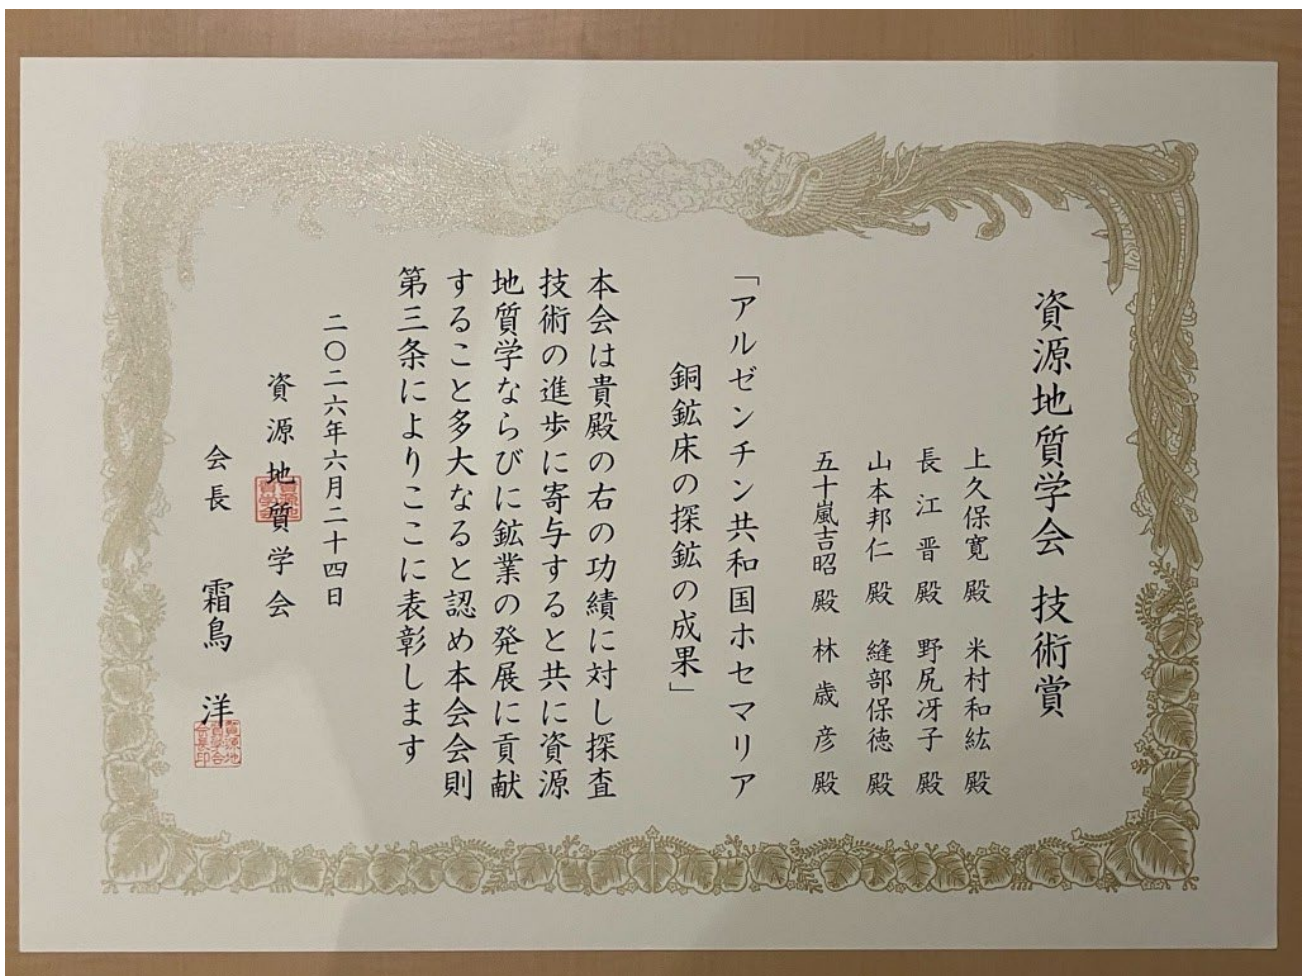 資源地質学会 技術賞
上久保寛 殿 米村和紘 殿
長江晋 殿 野尻冴子 殿
山本邦仁 殿 縫部保徳 殿
五十嵐吉昭 殿 林歳彦 殿
「アルゼンチン共和国ホセマリア
銅鉱床の探鉱の成果」
本会は貴殿の右の功績に対し探査
技術の進歩に寄与すると共に資源
地質学ならびに鉱業の発展に貢献
すること多大なると認め本会会則
第三条によりここに表彰します
二〇二六年六月二十四日
資源地質学会
会長 霜鳥 洋
資源地質学会
資源地質学会会長印